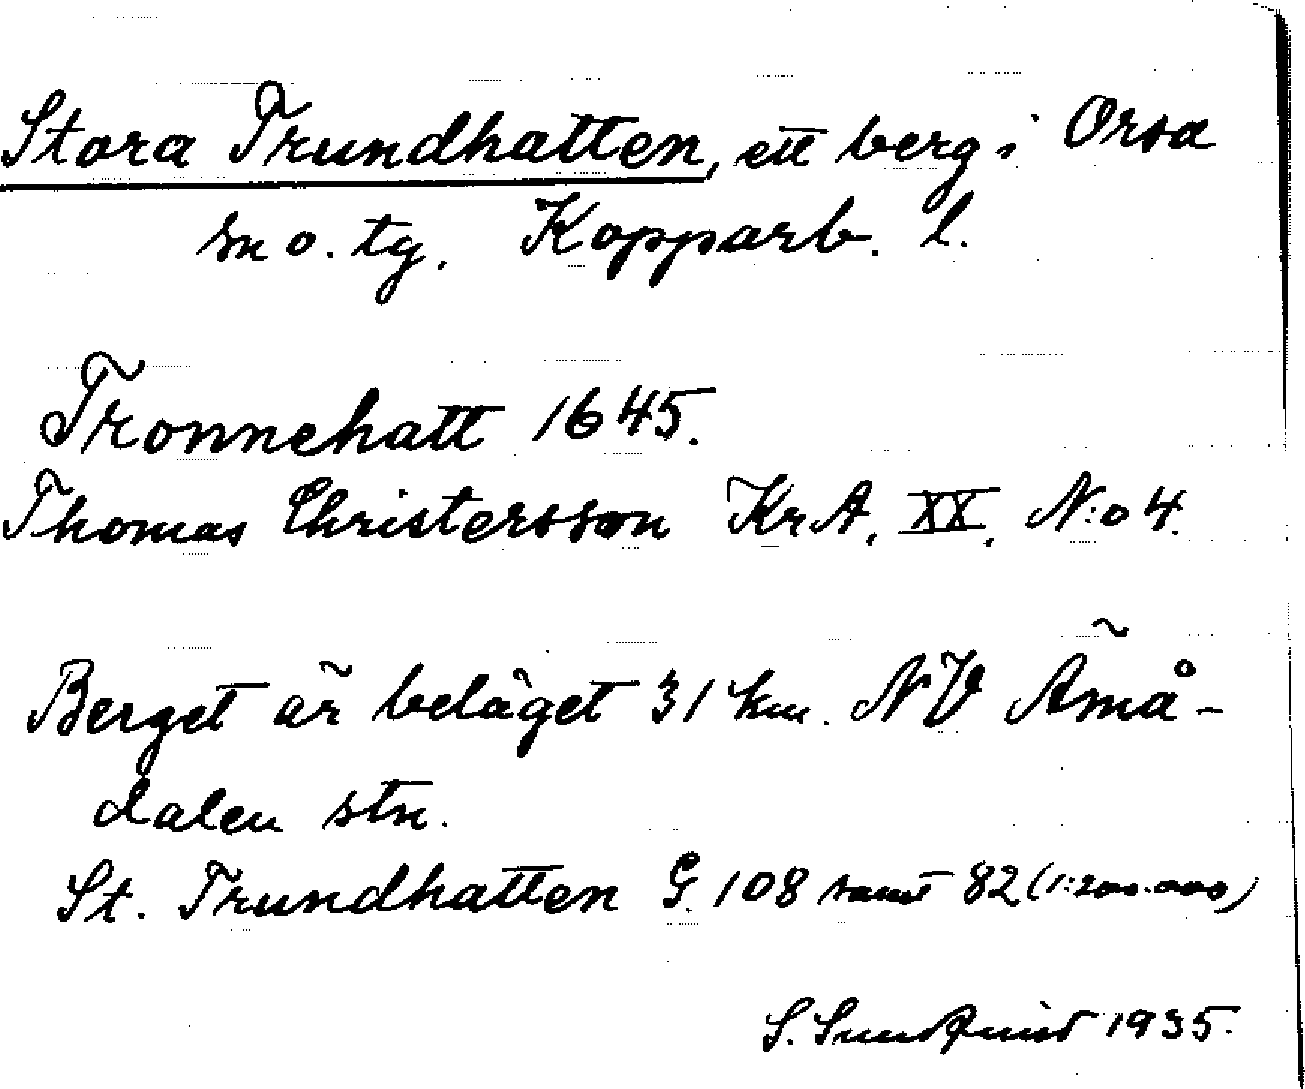 Stora Trundhatten, ett berg i Orsa
sn o. tg. Kopparb. l.
Tronnehatt 1645.
Thomas Christersson KrA. XX, N:o 4.
Berget är beläget 31 km. NV Ämå-
dalen stn.
St. Trundhatten G 108 samt 82 (1:200.000)
S. Sundquist 1935.